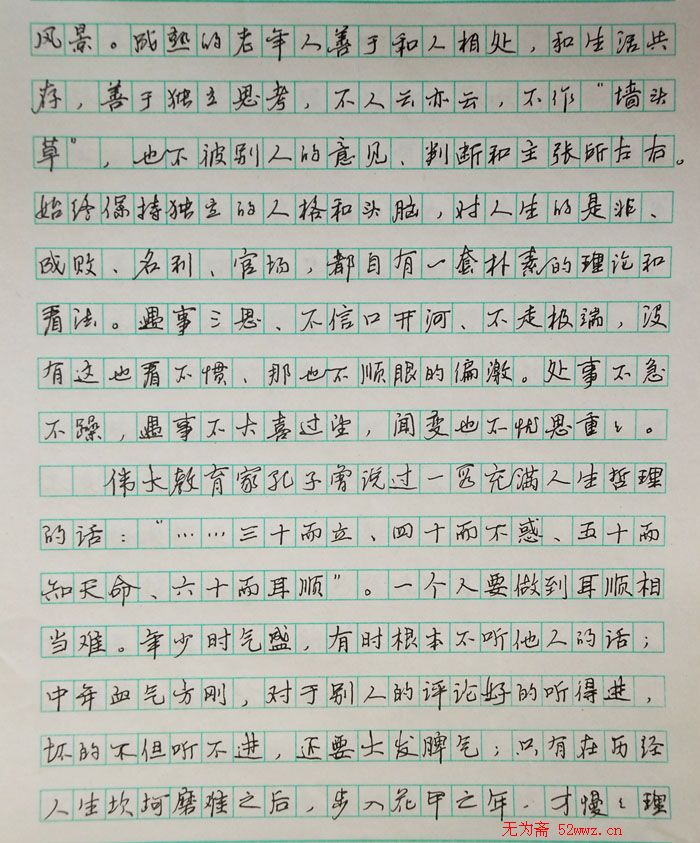 风景。成熟的老年人善于和人相处，和生活共
存，善于独立思考，不人云亦云，不作“墙头
草”，也不被别人的意见、判断和主张所左右。
始终保持独立的人格和头脑，对人生的是非、
成败、名利、官场，都自有一套朴素的理论和
看法。遇事三思、不信口开河、不走极端，没
有这也看不惯、那也不顺眼的偏激。处事不急
不躁，遇事不大喜过望，闻变也不忧思重々。
伟大教育家孔子曾说过一段充满人生哲理
的话：“……三十而立、四十而不惑、五十而
知天命、六十而耳顺”。一个人要做到耳顺相
当难。年少时气盛，有时根本不听他人的话；
中年血气方刚，对于别人的评论好的听得进，
坏的不但听不进，还要大发脾气；只有在历经
人生坎坷磨难之后，步入花甲之年，才慢々理
无为斋 52wwz.cn